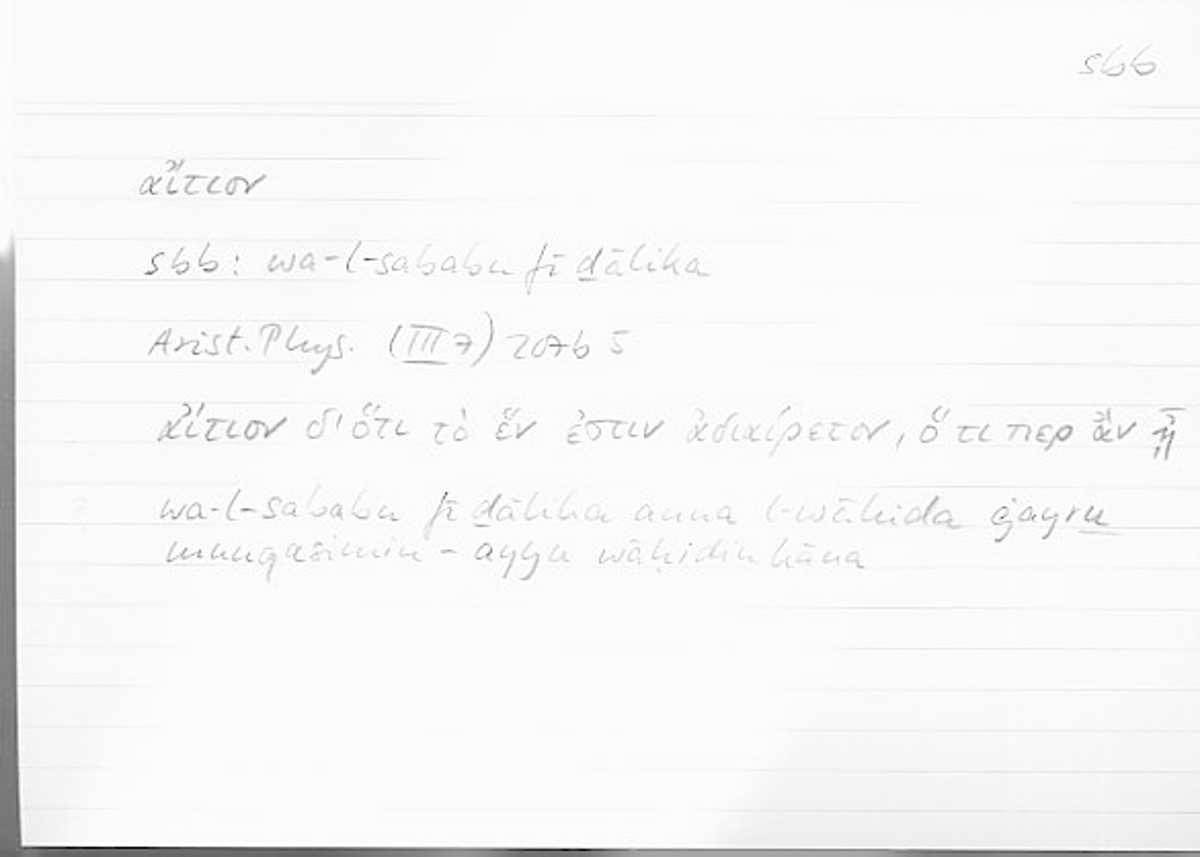 sbb
αἴτιον
sbb: wa-l-sababu fī ḏālika
Arist. Phys. (III 7) 207b 5
αἴτιον δ' ὅτι τὸ ἕν ἐστιν ἀδιαίρετον, ὅ τι περ ἂν ᾖ
wa-l-sababu fī ḏālika anna l-wāḥida ġayru
munqasimin - ayyu wāḥidin kāna